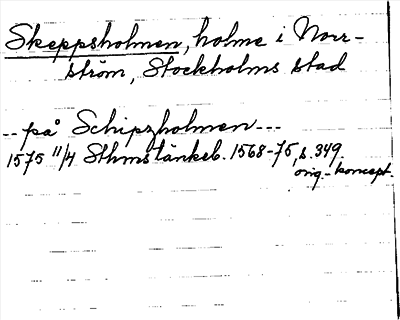 Skeppsholmen, holme i Norr-
ström, Stockholms stad
-- på Schipzholmen ---
1575 11/4 Sthms tänkeb. 1568-75, s. 349.
orig.-koncept.